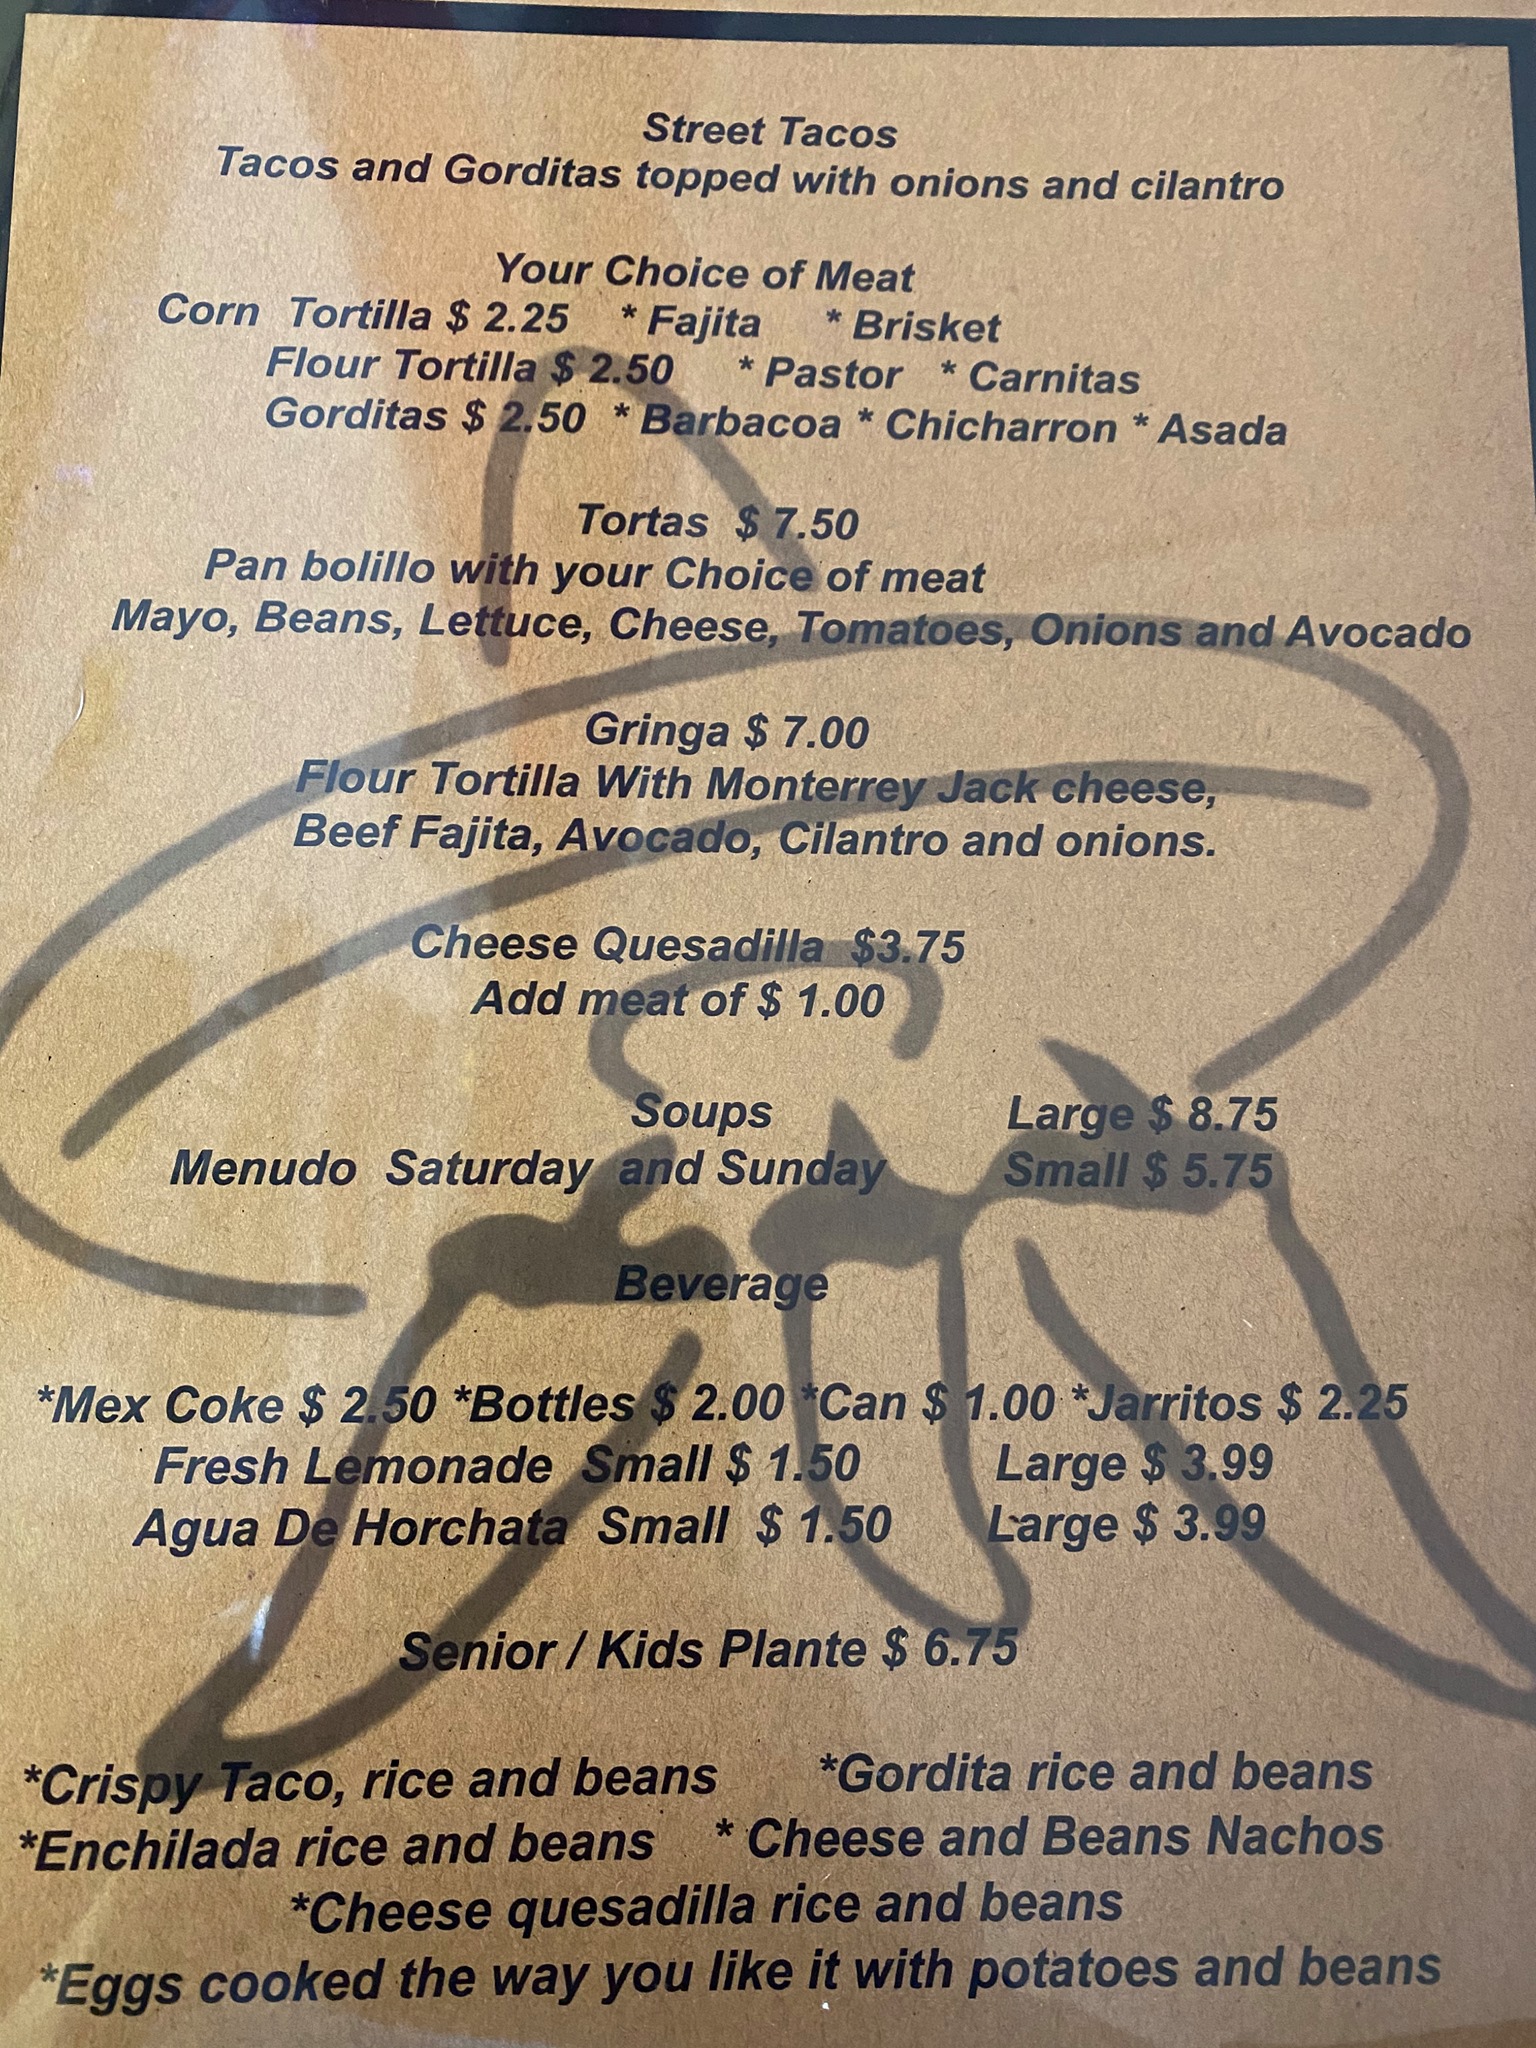 Street Tacos
Tacos and Gorditas topped with onions and cilantro
Your Choice of Meat
Corn Tortilla $ 2.25 * Fajita * Brisket
Flour Tortilla $ 2.50 * Pastor * Carnitas
Gorditas $ 2.50 * Barbacoa * Chicharron * Asada
Tortas $ 7.50
Pan bolillo with your Choice of meat
Mayo, Beans, Lettuce, Cheese, Tomatoes, Onions and Avocado
Gringa $ 7.00
Flour Tortilla With Monterrey Jack cheese,
Beef Fajita, Avocado, Cilantro and onions.
Cheese Quesadilla $3.75
Add meat of $ 1.00
Soups Large $ 8.75
Menudo Saturday and Sunday Small $ 5.75
Beverage
*Mex Coke $ 2.50 *Bottles $ 2.00 *Can $ 1.00 *Jarritos $ 2.25
Fresh Lemonade Small $ 1.50 Large $ 3.99
Agua De Horchata Small $ 1.50 Large $ 3.99
Senior / Kids Plante $ 6.75
*Crispy Taco, rice and beans *Gordita rice and beans
*Enchilada rice and beans * Cheese and Beans Nachos
*Cheese quesadilla rice and beans
*Eggs cooked the way you like it with potatoes and beans